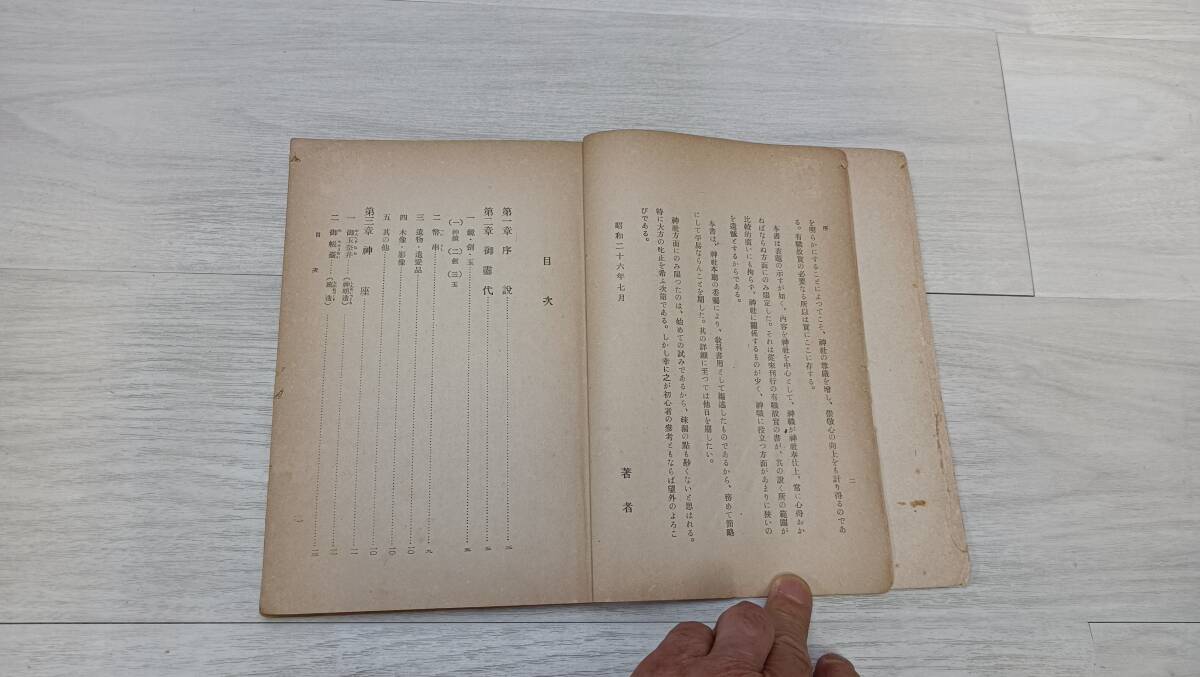 序
二
を明らかにすることによつてこそ、神社の尊嚴を增し、崇敬心の向上をも計り得るのであ
る。有職故實の必要なる所以は實にここに存する。
本書は表題の示すが如く、內容を神社を中心として、神職が神社奉仕上、常に心得おか
ねばならぬ方面にのみ限定した。それは從來刊行の有職故實の書が、其の說く所の範圍が
比較的廣いにも拘らず、神社に關係するものが少く、神職に役立つ方面があまりに狹いの
を遺憾とするからである。
本書は、神社本廳の委囑により、敎科書用として編述したものであるから、務めて簡略
にして平易ならんことを期した。其の詳細に至つては他日を期したい。
神社方面にのみ限つたのは、始めての試みであるから、疎漏の點も尠くないと思はれる。
特に大方の叱正を希ふ次第である。しかし幸に之が初心者の參考ともならば望外のよろこ
びである。
昭和二十六年七月
著者
目次
第一章 序說
第二章 御靈代
一 鏡・劍・玉
(一)神鏡 (二)劍 (三)玉
二 幣串
三 遺物・遺愛品
四 木像・影像
五 其の他
第三章 神座
一 御玉奈井
二 御帳臺
目次